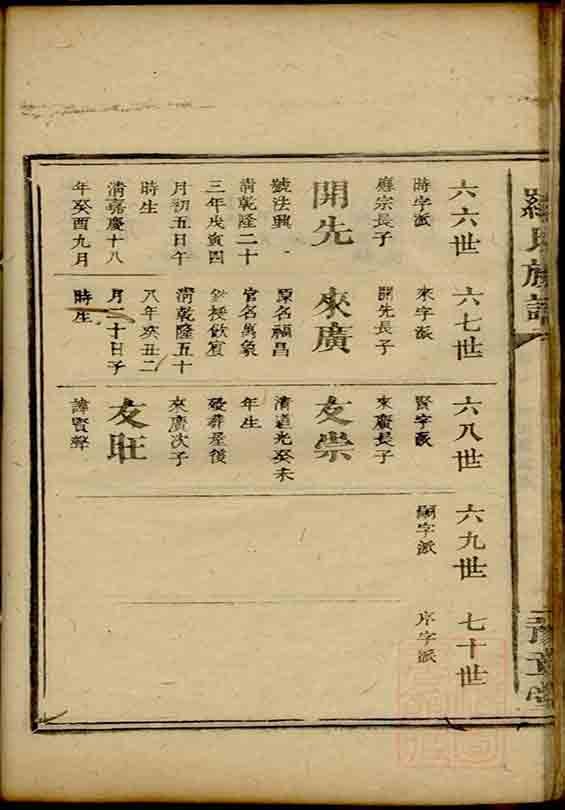 羅氏族譜
豫章堂
六六世
時字派
應宗長子
開先
號法興
清乾隆二十
三年戊寅四
月初五日午
時生
清嘉慶十八
年癸酉九月
六七世
來字派
開先長子
來廣
原名福昌
官名萬象
飲賓
清乾隆五十
八年癸丑二
月二十日子
時生
六八世
賢字派
來廣長子
友崇
清道光癸未
年生
歿葬屋後
來廣次子
友旺
諱賢聲
六九世
字派
七十世
序字派